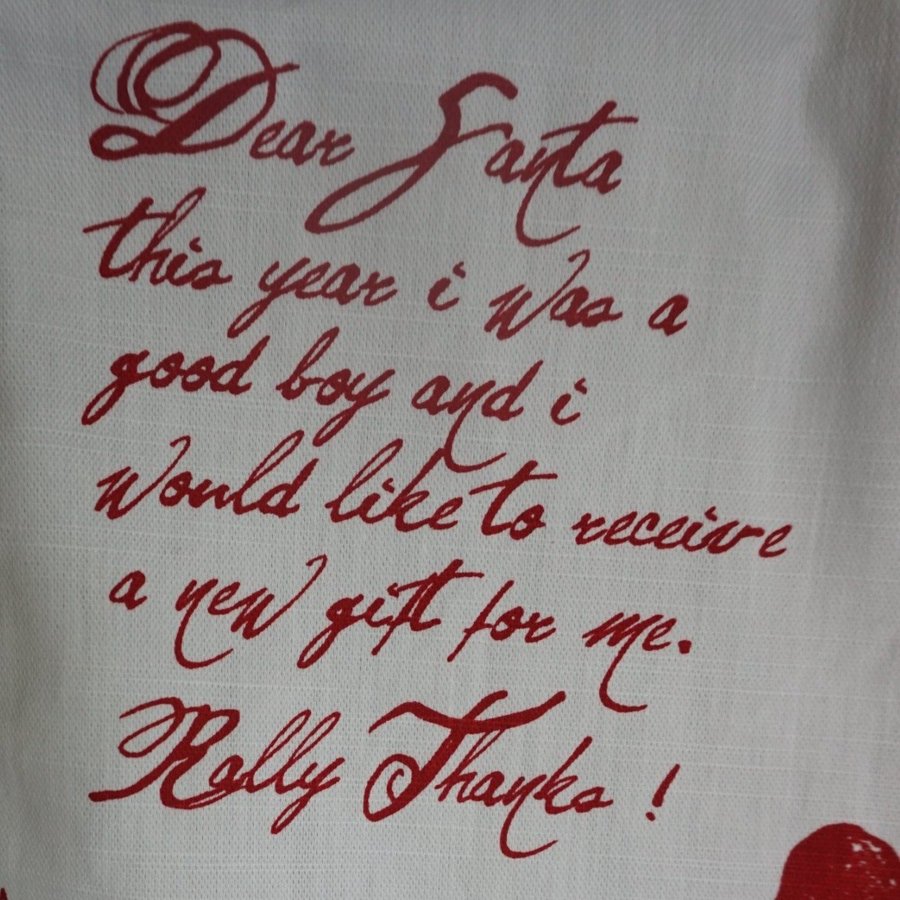 Dear Santa
this year i was a
good boy and i
would like to receive
a new gift for me.
Rally Thanks !